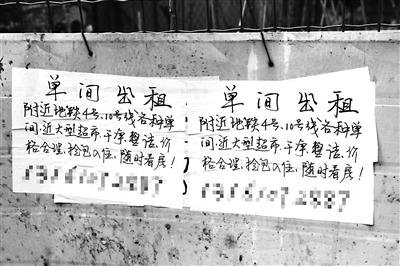 单间出租
附近地铁4号、10号线各种单
间、近大型超市、干净整洁、价
格合理、拎包入住、随时看房！
单间出租
附近地铁4号、10号线各种单
间、近大型超市、干净整洁、价
格合理、拎包入住、随时看房！